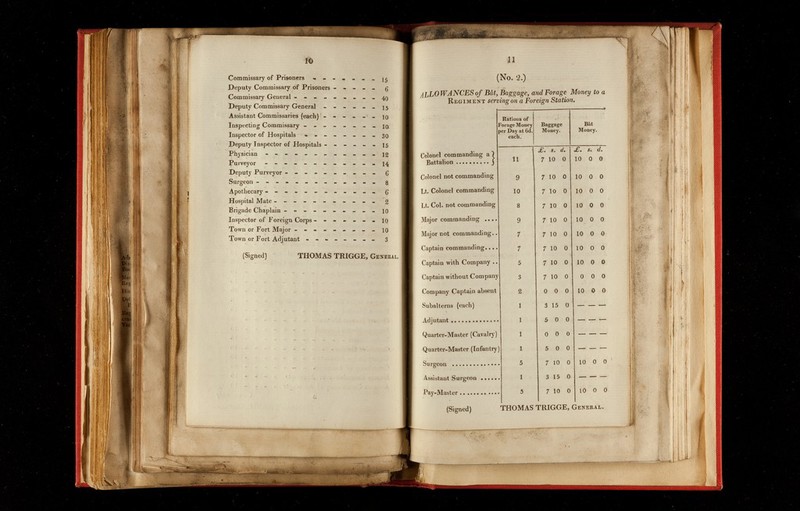 10
Commissary of Prisoners - - - - - - - 15
Deputy Commissary of Prisoners - - - - - 6
Commissary General - - - - - - - - 40
Deputy Commissary General - - - - - - 15
Assistant Commissaries (each) - - - - - - 10
Inspecting Commissary - - - - - - - - 10
Inspector of Hospitals - - - - - - - - 30
Deputy Inspector of Hospitals - - - - - - 15
Physician - - - - - - - - - - - 12
Purveyor - - - - - - - - - - - 14
Deputy Purveyor - - - - - - - - - - 6
Surgeon - - - - - - - - - - - - 8
Apothecary - - - - - - - - - - - 6
Hospital Mate - - - - - - - - - - 2
Brigade Chaplain - - - - - - - - - 10
Inspector of Foreign Corps - - - - - - - 10
Town or Fort Major - - - - - - - - - 10
Town or Fort Adjutant - - - - - - - - 3
(Signed) THOMAS TRIGGE, General.
11
(No. 2.)
ALLOWANCES of Bât, Baggage, and Forage Money to a
Regiment serving on a Foreign Station.
Rations of Forage Money per Day at 6d. each. Baggage Money. Bât Money.
£. s. d. £. s. d.
Colonel commanding a Battalion .......... } 11 7 10 0 10 0 0
Colonel not commanding 9 7 10 0 10 0 0
Lt. Colonel commanding 10 7 10 0 10 0 0
Lt. Col. not commanding 8 7 10 0 10 0 0
Major commanding .... 9 7 10 0 10 0 0
Major not commanding.. 7 7 10 0 10 0 0
Captain commanding.... 7 7 10 0 10 0 0
Captain with Company .. 5 7 10 0 10 0 0
Captain without Company 3 7 10 0 0 0 0
Company Captain absent 2 0 0 0 10 0 0
Subalterns (each) 1 3 15 0 — — —
Adjutant .............. 1 5 0 0 — — —
Quarter-Master (Cavalry) 1 0 0 0 — — —
Quarter-Master (Infantry) 1 5 0 0 — — —
Surgeon .............. 5 7 10 0 10 0 0
Assistant Surgeon ...... 1 3 15 0 — — —
Pay-Master ............ 3 7 10 0 10 0 0
(Signed) THOMAS TRIGGE, General.